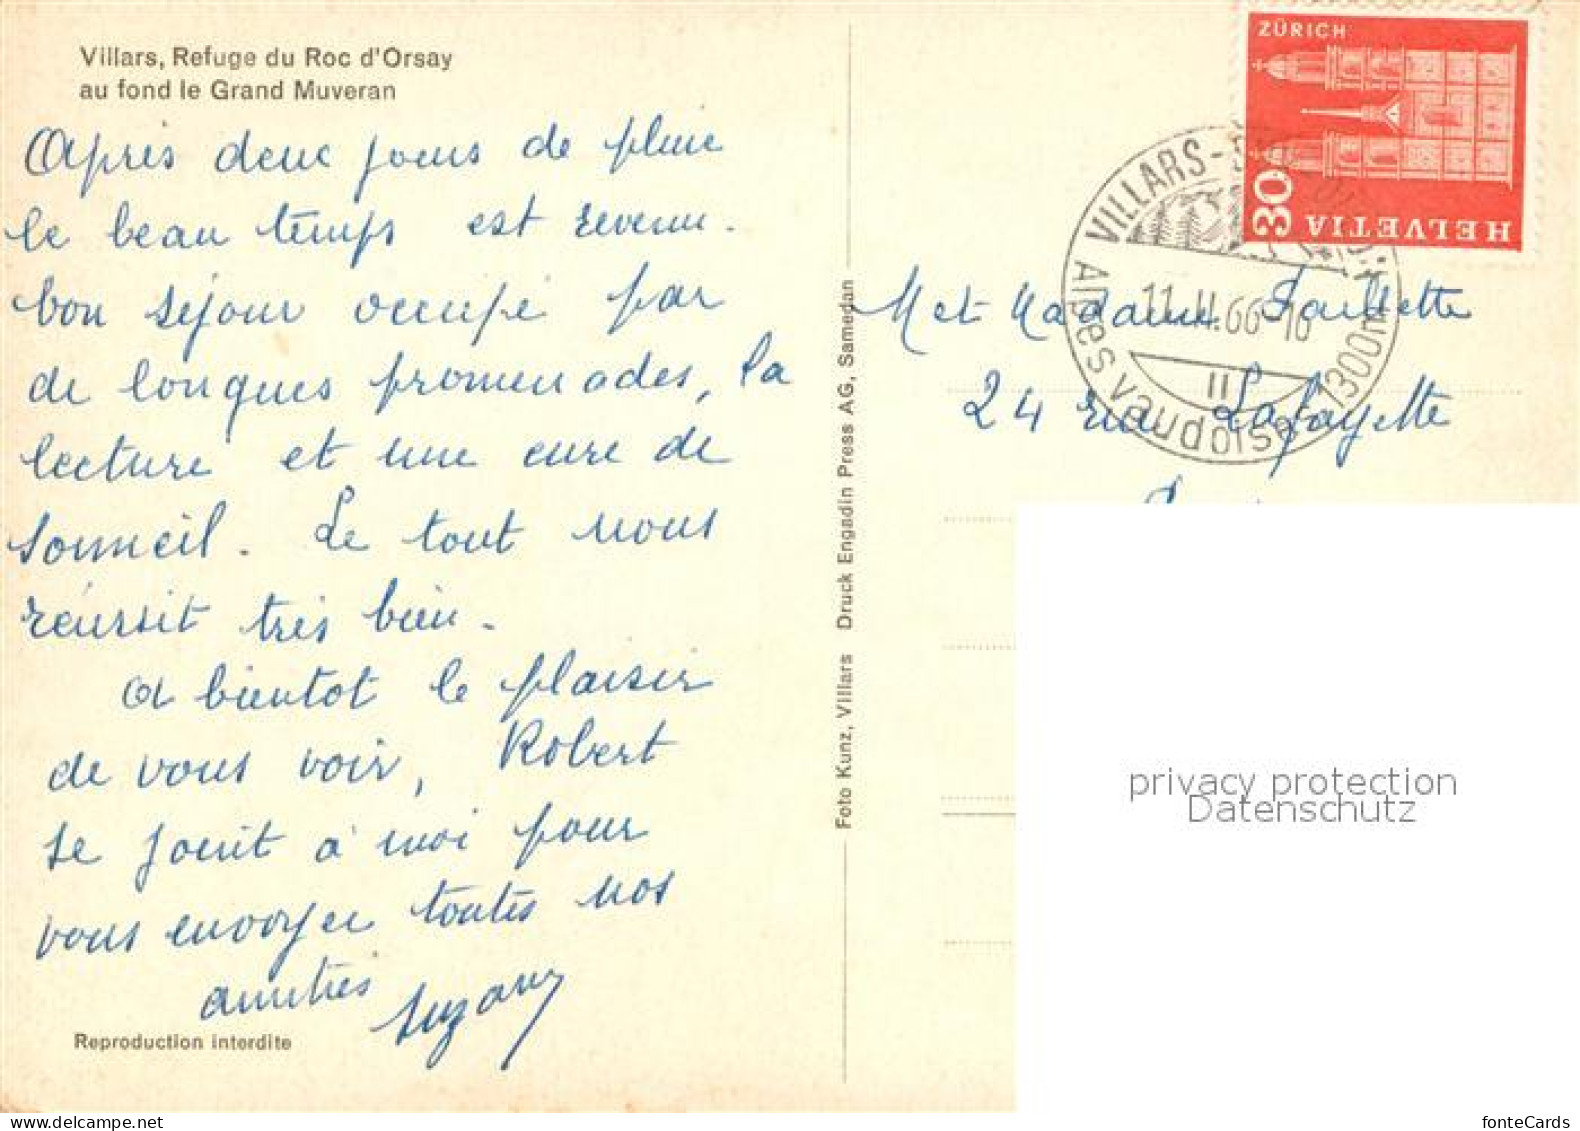 Villars, Refuge du Roc d'Orsay
au fond le Grand Muveran
Après deux jours de pluie
le beau temps est revenu.
bon séjour occupé par
de longues promenades, la
lecture et une cure de
sommeil. Le tout nous
réussit très bien.
A bientot le plaisir
de vous voir, Robert
se joint à moi pour
vous envoyer toutes nos
amitiés Suzany
Reproduction interdite
Foto Kunz, Villars Druck Engadin Press AG, Samedan
ZÜRICH
30
HELVETIA
VILLARS-
11.II.66-16
II
Alpes vaudoises 1300m
M et Madame
24 rue Lafayette
privacy protection
Datenschutz
fonteCards